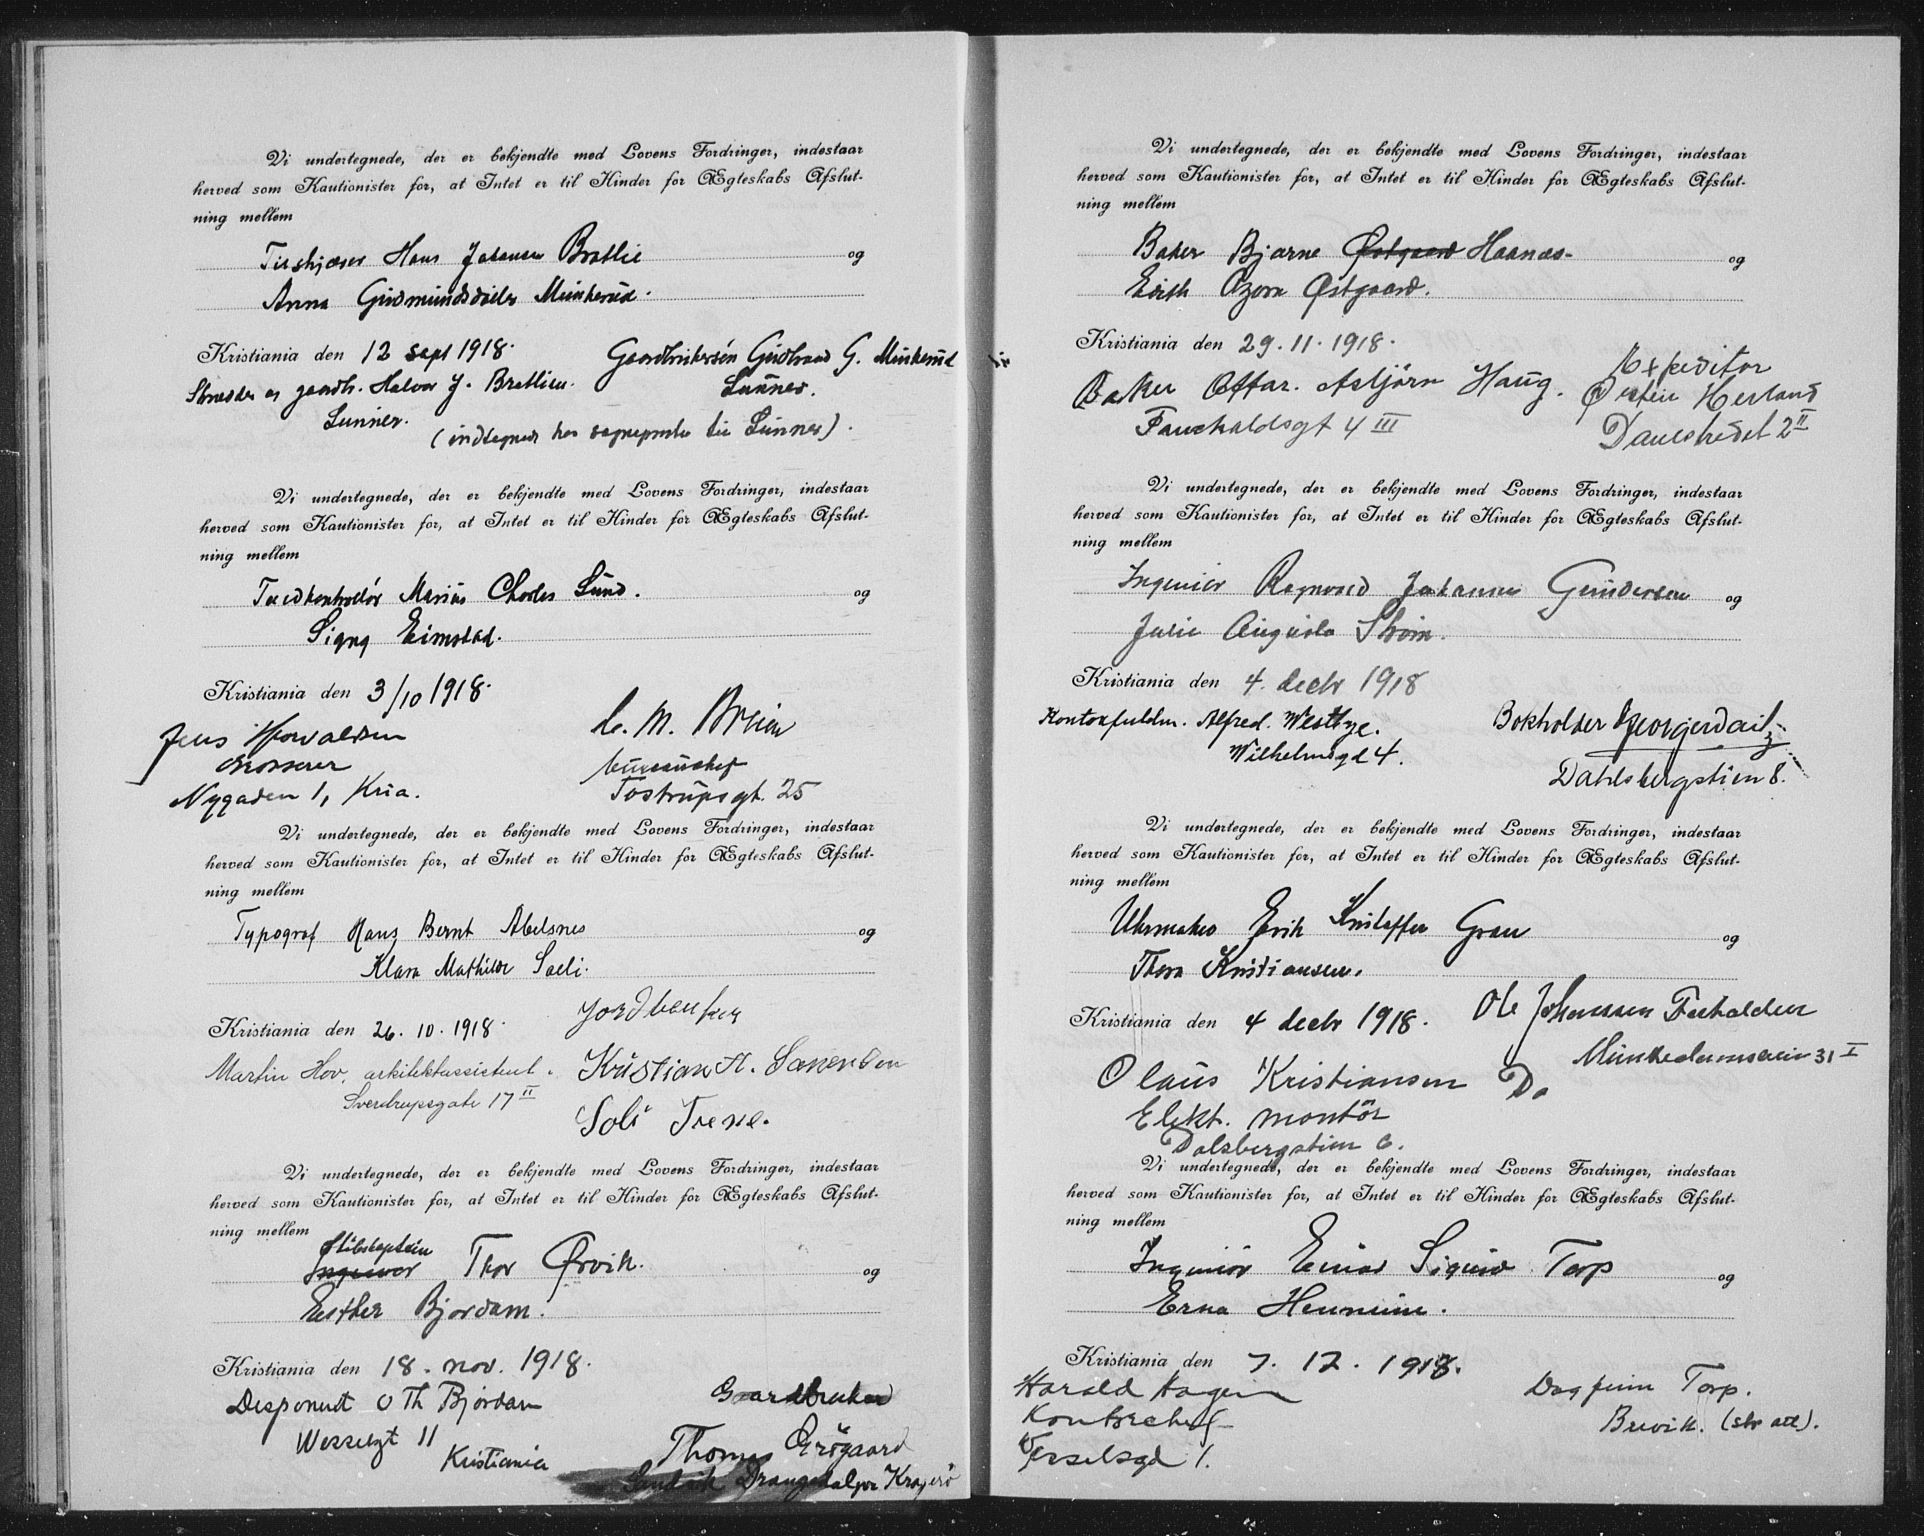 Vi undertegnede, der er bekjendte med Lovens Fordringer, indestaar
herved som Kautionister for, at Intet er til Hinder for Ægteskabs Afslut-
ning mellem
Hans Johansen Bratlie og
Anna Gudmundsdatter Munkerud.
Kristiania den 12 sept 1918.
Gaardbrukersøn Gudbrand G. Munkerud
Lunner.
gaardb. Halvor J. Bratlien.
Lunner.
(indtegnet hos sognepresten til Lunner).
Vi undertegnede, der er bekjendte med Lovens Fordringer, indestaar
herved som Kautionister for, at Intet er til Hinder for Ægteskabs Afslut-
ning mellem
Marius Charles Lund. og
Signy Eimstad.
Kristiania den 3/10 1918.
Jens Thorvaldsen
Grosserer
Nygaden 1, Kria.
C. M. Breien
bureauchef
Tostrupsgt. 25
Vi undertegnede, der er bekjendte med Lovens Fordringer, indestaar
herved som Kautionister for, at Intet er til Hinder for Ægteskabs Afslut-
ning mellem
Typograf Hans Bernt Abelsnes og
Klara Mathilde Soeli.
Kristiania den 26. 10. 1918.
Martin Hov, arkitektassistent.
Sverdrupsgate 17 II
Jordbruker
Kristian H.
Soli
Vi undertegnede, der er bekjendte med Lovens Fordringer, indestaar
herved som Kautionister for, at Intet er til Hinder for Ægteskabs Afslut-
ning mellem
Skibskaptein
Ingeniør Thor Ørvik. og
Esther Bjordam.
Kristiania den 18. nov. 1918.
Disponent O Th Bjordam
Wesselsgt 11
Kristiania
Gaardbruker
Thomas
Drangedal pr Kragerø
Vi undertegnede, der er bekjendte med Lovens Fordringer, indestaar
herved som Kautionister for, at Intet er til Hinder for Ægteskabs Afslut-
ning mellem
Baker Bjarne Østgaard Haanæs og
Edith Østgaard.
Kristiania den 29. 11. 1918.
Baker Ottar Asbjørn Haug.
Fauchaldsgt 4 III
Expeditør
Østein Herland
2 II
Vi undertegnede, der er bekjendte med Lovens Fordringer, indestaar
herved som Kautionister for, at Intet er til Hinder for Ægteskabs Afslut-
ning mellem
Ingeniør Ragnvald Johannes Gundersen og
Julie Augusta Strøm.
Kristiania den 4. decbr 1918
Kontorfuldm. Alfred Westbye.
Wilhelmsgd 4.
Bokholder
Dahlsbergstien 8.
Vi undertegnede, der er bekjendte med Lovens Fordringer, indestaar
herved som Kautionister for, at Intet er til Hinder for Ægteskabs Afslut-
ning mellem
Uhrmaker Erik Kristoffer Gran og
Thora Kristiansen.
Kristiania den 4 decbr 1918.
Ole Johannessen
Munkedamsveien 31 I
Olaus Kristiansen Do
Elekt. montör
Dalsbergstien 6.
Vi undertegnede, der er bekjendte med Lovens Fordringer, indestaar
herved som Kautionister for, at Intet er til Hinder for Ægteskabs Afslut-
ning mellem
Ingeniør Einar Sigurd Torp og
Erna Henmine.
Kristiania den 7. 12. 1918.
Harald Hagen
Kontorchef
Wesselsgd 1.
Dagfinn Torp.
Brevik. (skr att).